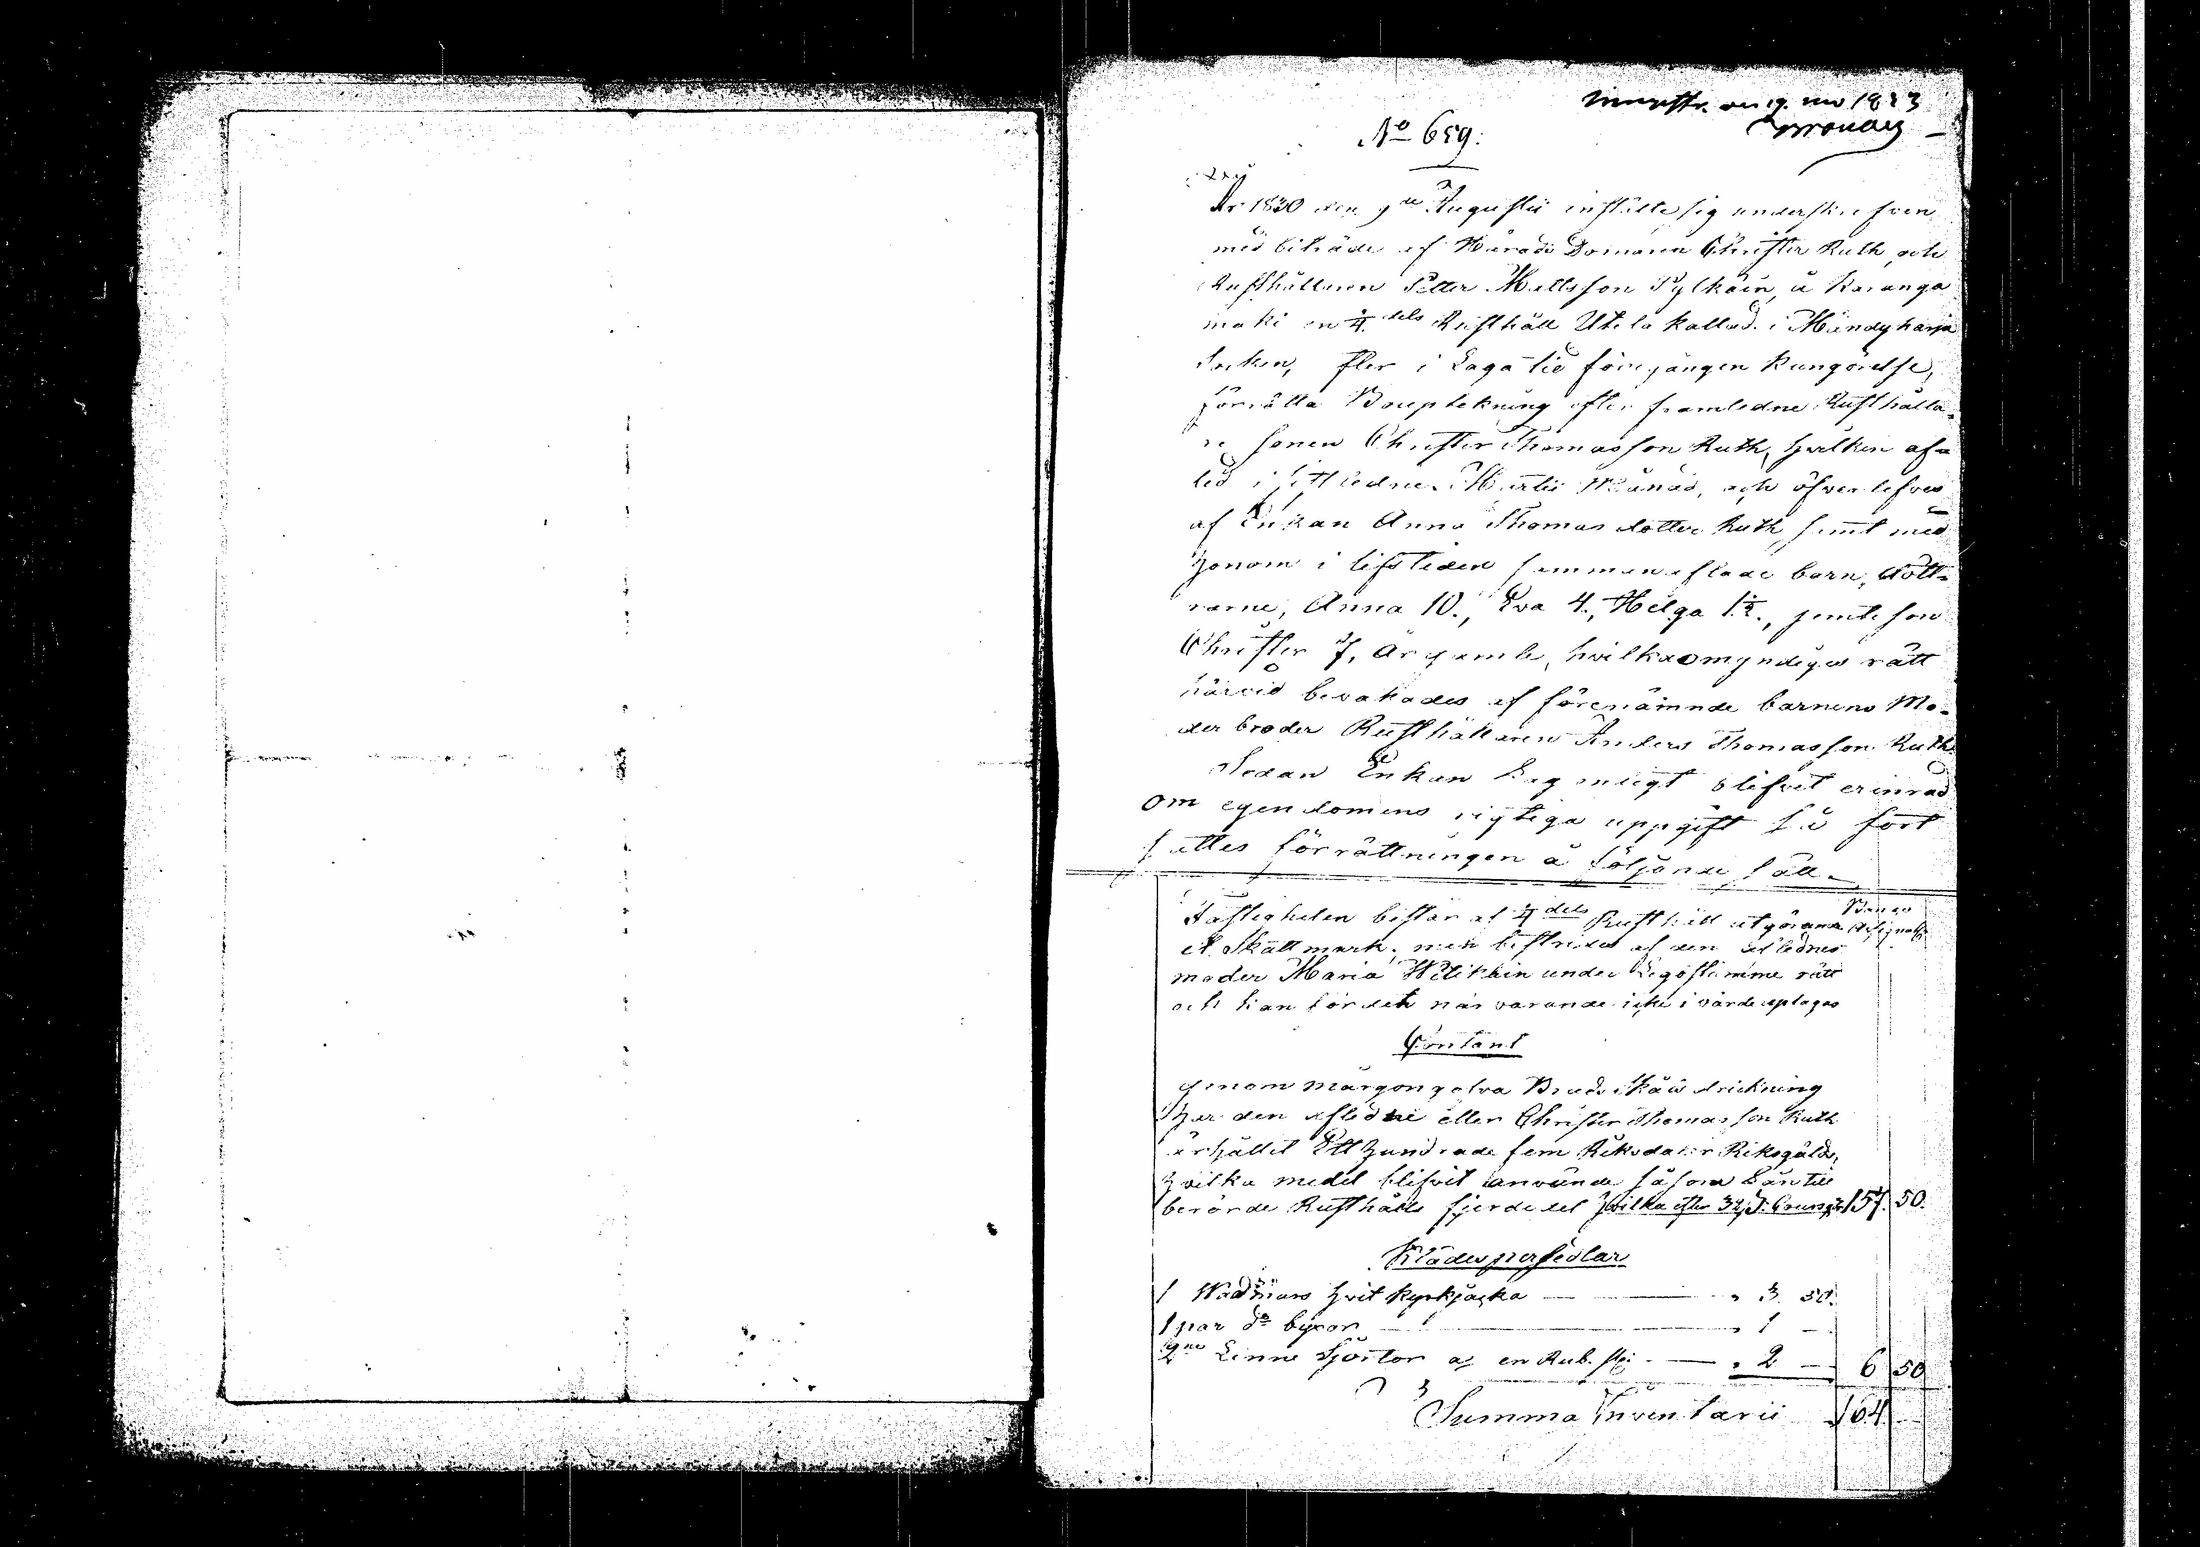 den 19. 1833
No 659.
År 1830 den 9de Augustii instälte sig underskrefven
med biträde af Härads Domaren Christer Ruth, och
Rusthållaren Petter Mattsson Pylkäin, å Karanga
mäki en 1/4 dels Rusthåll Utela kallad i Mändyharju
Socken, efter i Laga tid föregången kungörelse,
förrätta Boupteckning efter framledne Rusthålla-
re sonen Christer Thomasson Ruth, hvilken af-
led i sistledne Martii Månad, och öfverlefves
af Enkan Anna Thomasdotter Ruth, samt med
honom i lifstiden sammanaflade barn, dött-
rarne, Anna 10., Eva 4., Helga 1 1/2., jemte son
Christer 7, år gamle, hvilkas omyndiges rätt
härvid bevakades af förenämnde barnens Mo-
der broder Rusthållaren Anders Thomasson Ruth.
Sedan Enkan Lagenligt blifvit erinrad
om egendomens rigtiga uppgift så fort
sattes förrättningen å följande sätt.
Fastigheten består af 1/4 dels Rusthåll utgörande Banco Assignat:
ett Skattmark, men bestrides af den aflednes
moder Maria Wilikäin under Legostämme rätt
och kan för det när varande icke i värde uptagas
Contant
genom märgongofva Bruds Skåls drickning
har den afledne eller Christer Thomasson Ruth
ärhållit Ett hundrade fem Riksdaler Riksgälds,
hvilka medel blifvit använde såsom Lån till
berörde Rusthålls fjerdedel hvilka efter 157. 50.
Klädespersedlar
1 Wadmars hvit kyrkjacka — " 3. 50.
1 par do byxor — " 1 —
2ne Linne Sjortor a en Rub. st: — " 2 — 6 50
Summa Inventarii 164 —